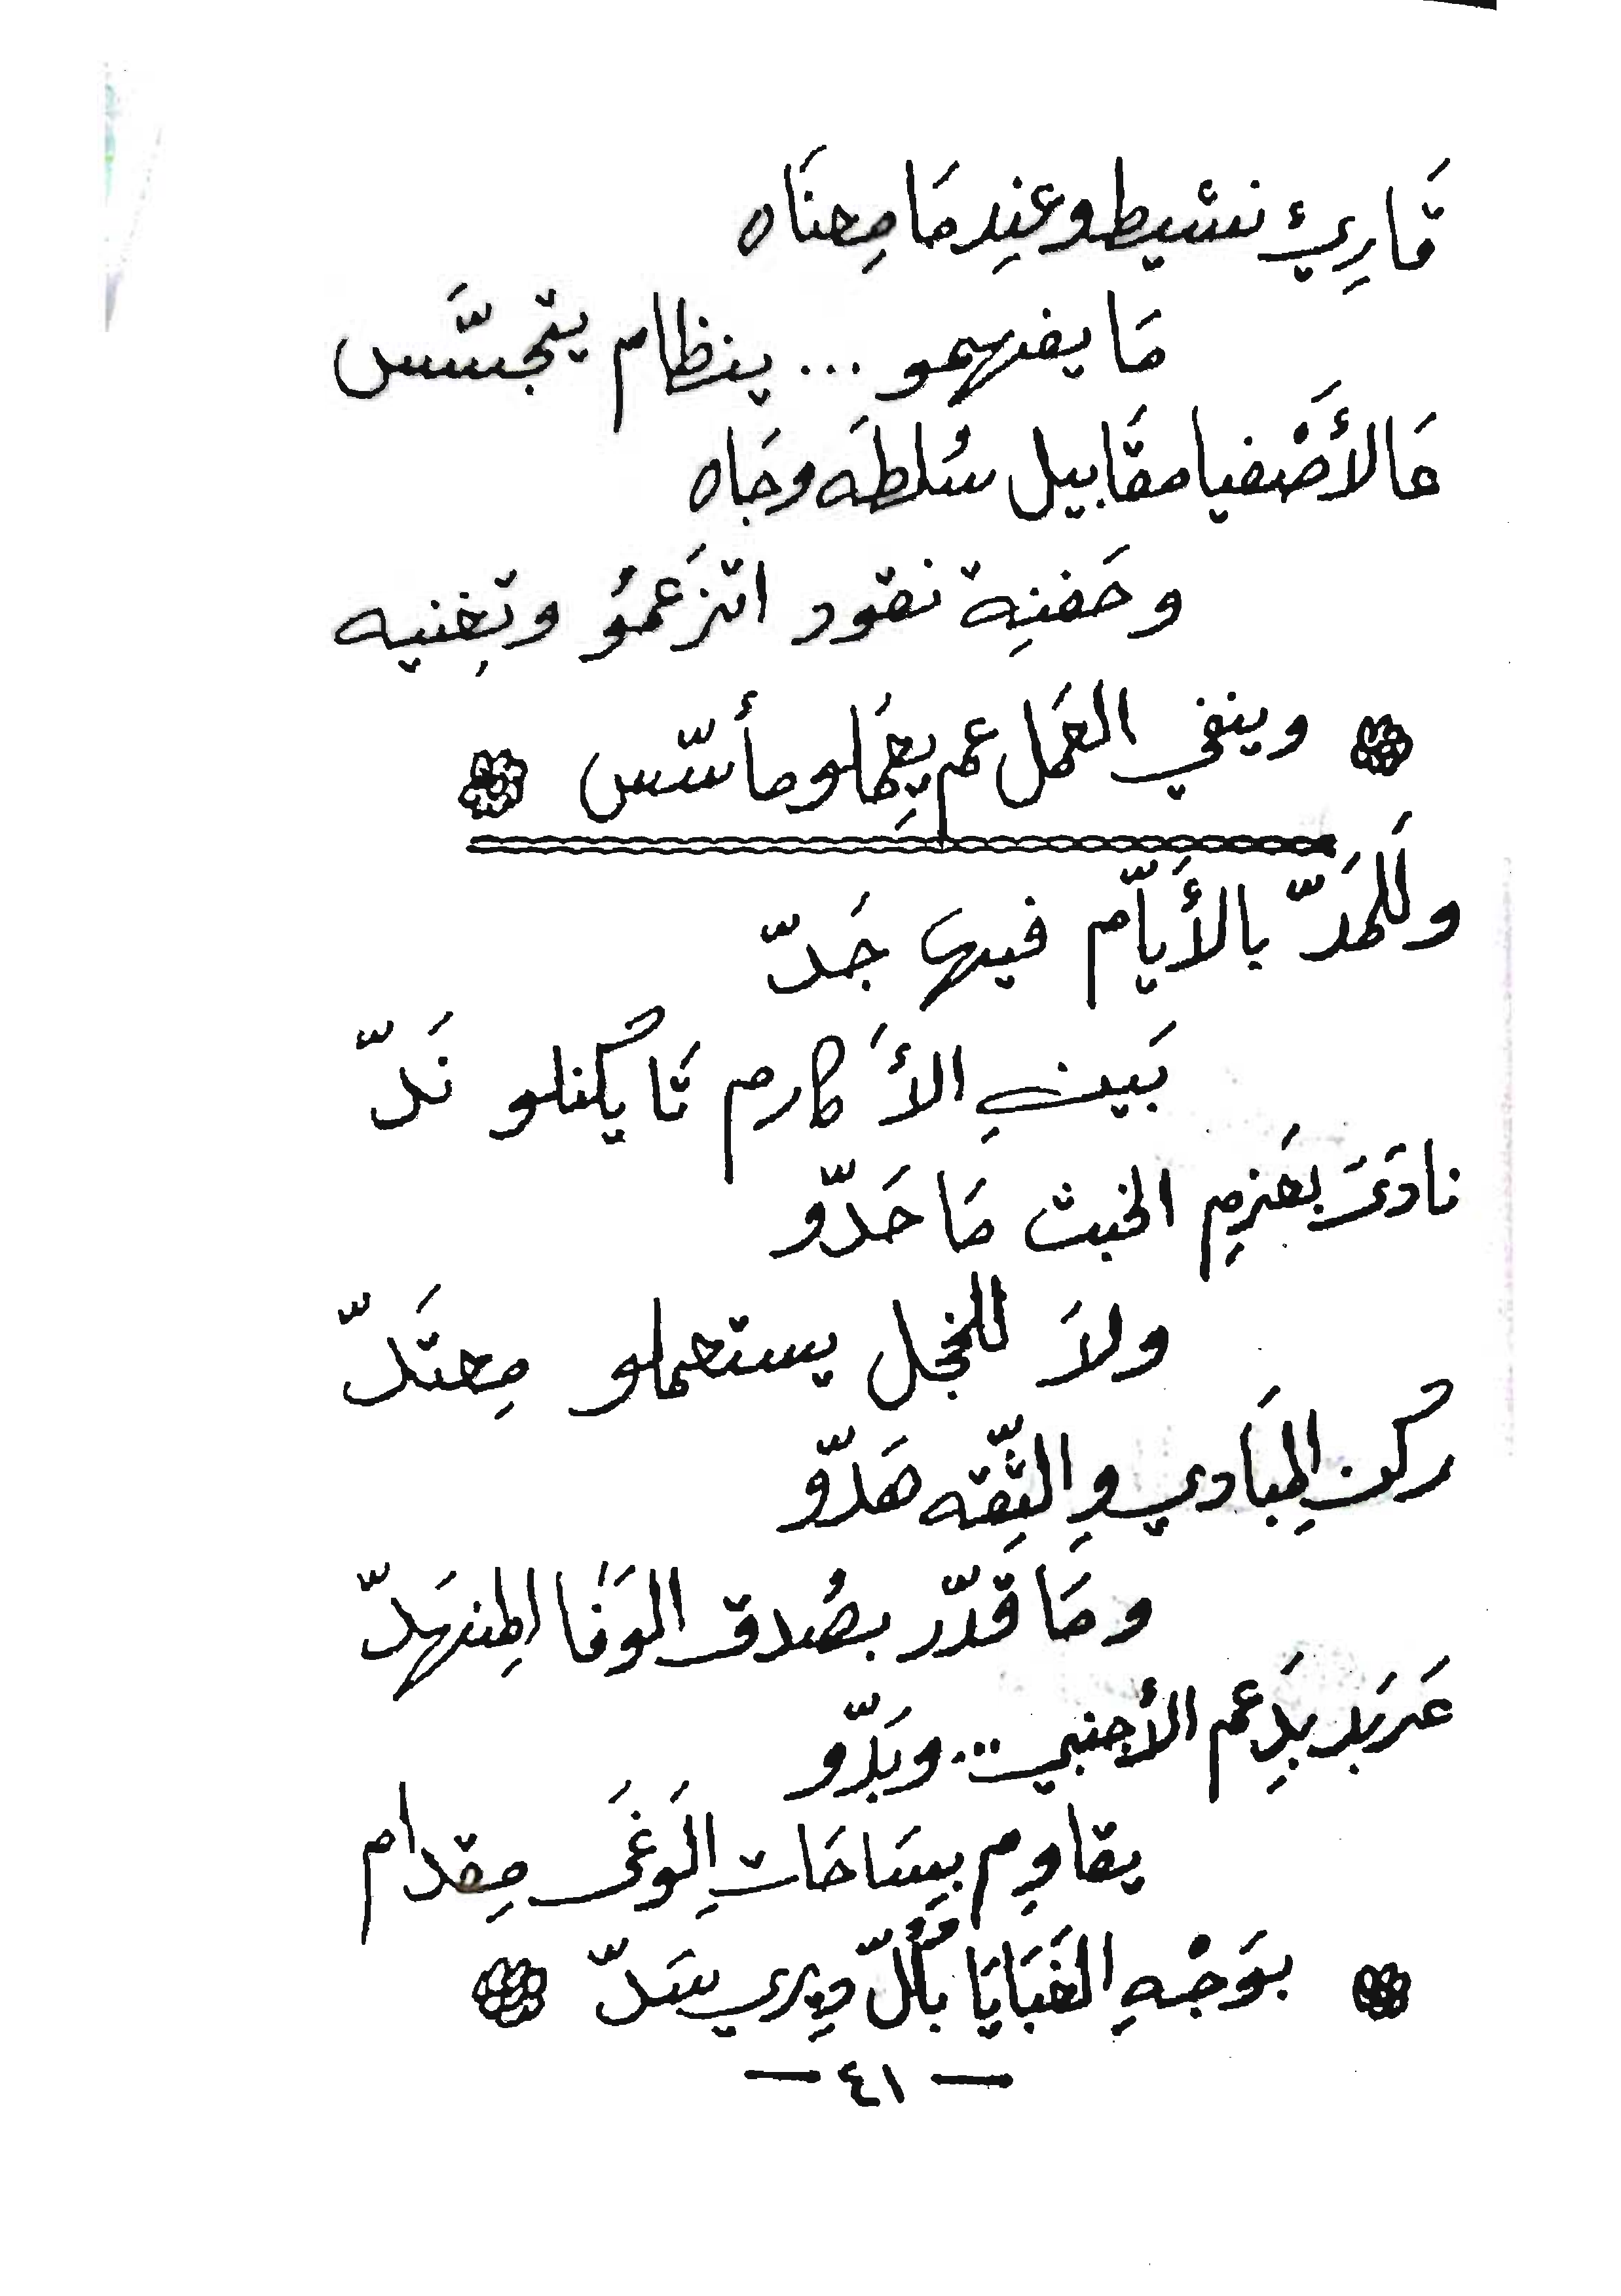 قَارِيْ نشيط وعنِدمَا مِعنَاه
مَا يفهمو ... بنظام يتجسَّس
عَالأَصْفيا مقَابيل سُلطَه وجَاه
وحَفنِة نقود اتزَعمُو وتِغنيه
وينفي العَمل عم يِعمَلو مأسّس
وللمَدّ بالأَيَّام فيها جَدّ
بَينِ الأَكارم تَا يكُنلو نَدّ
نادَىَ بعَزمِ الخبث مَا حَدّو
ولاَ للخجل يستعملو مِعتَدّ
ركُن المِبَادي وِالثِّقَه هَدّو
ومَا قَدّر بصُدق الوَفَا المِنهَدّ
عَربَد بدِعم الأجنبي ... وبَدّو
يقاوِم بسَاحَاتِ الوَغَى مِقدام
بوَجْهِ الغَبَايَا بكُلّ دِيري سَدّ
— ٤١ —